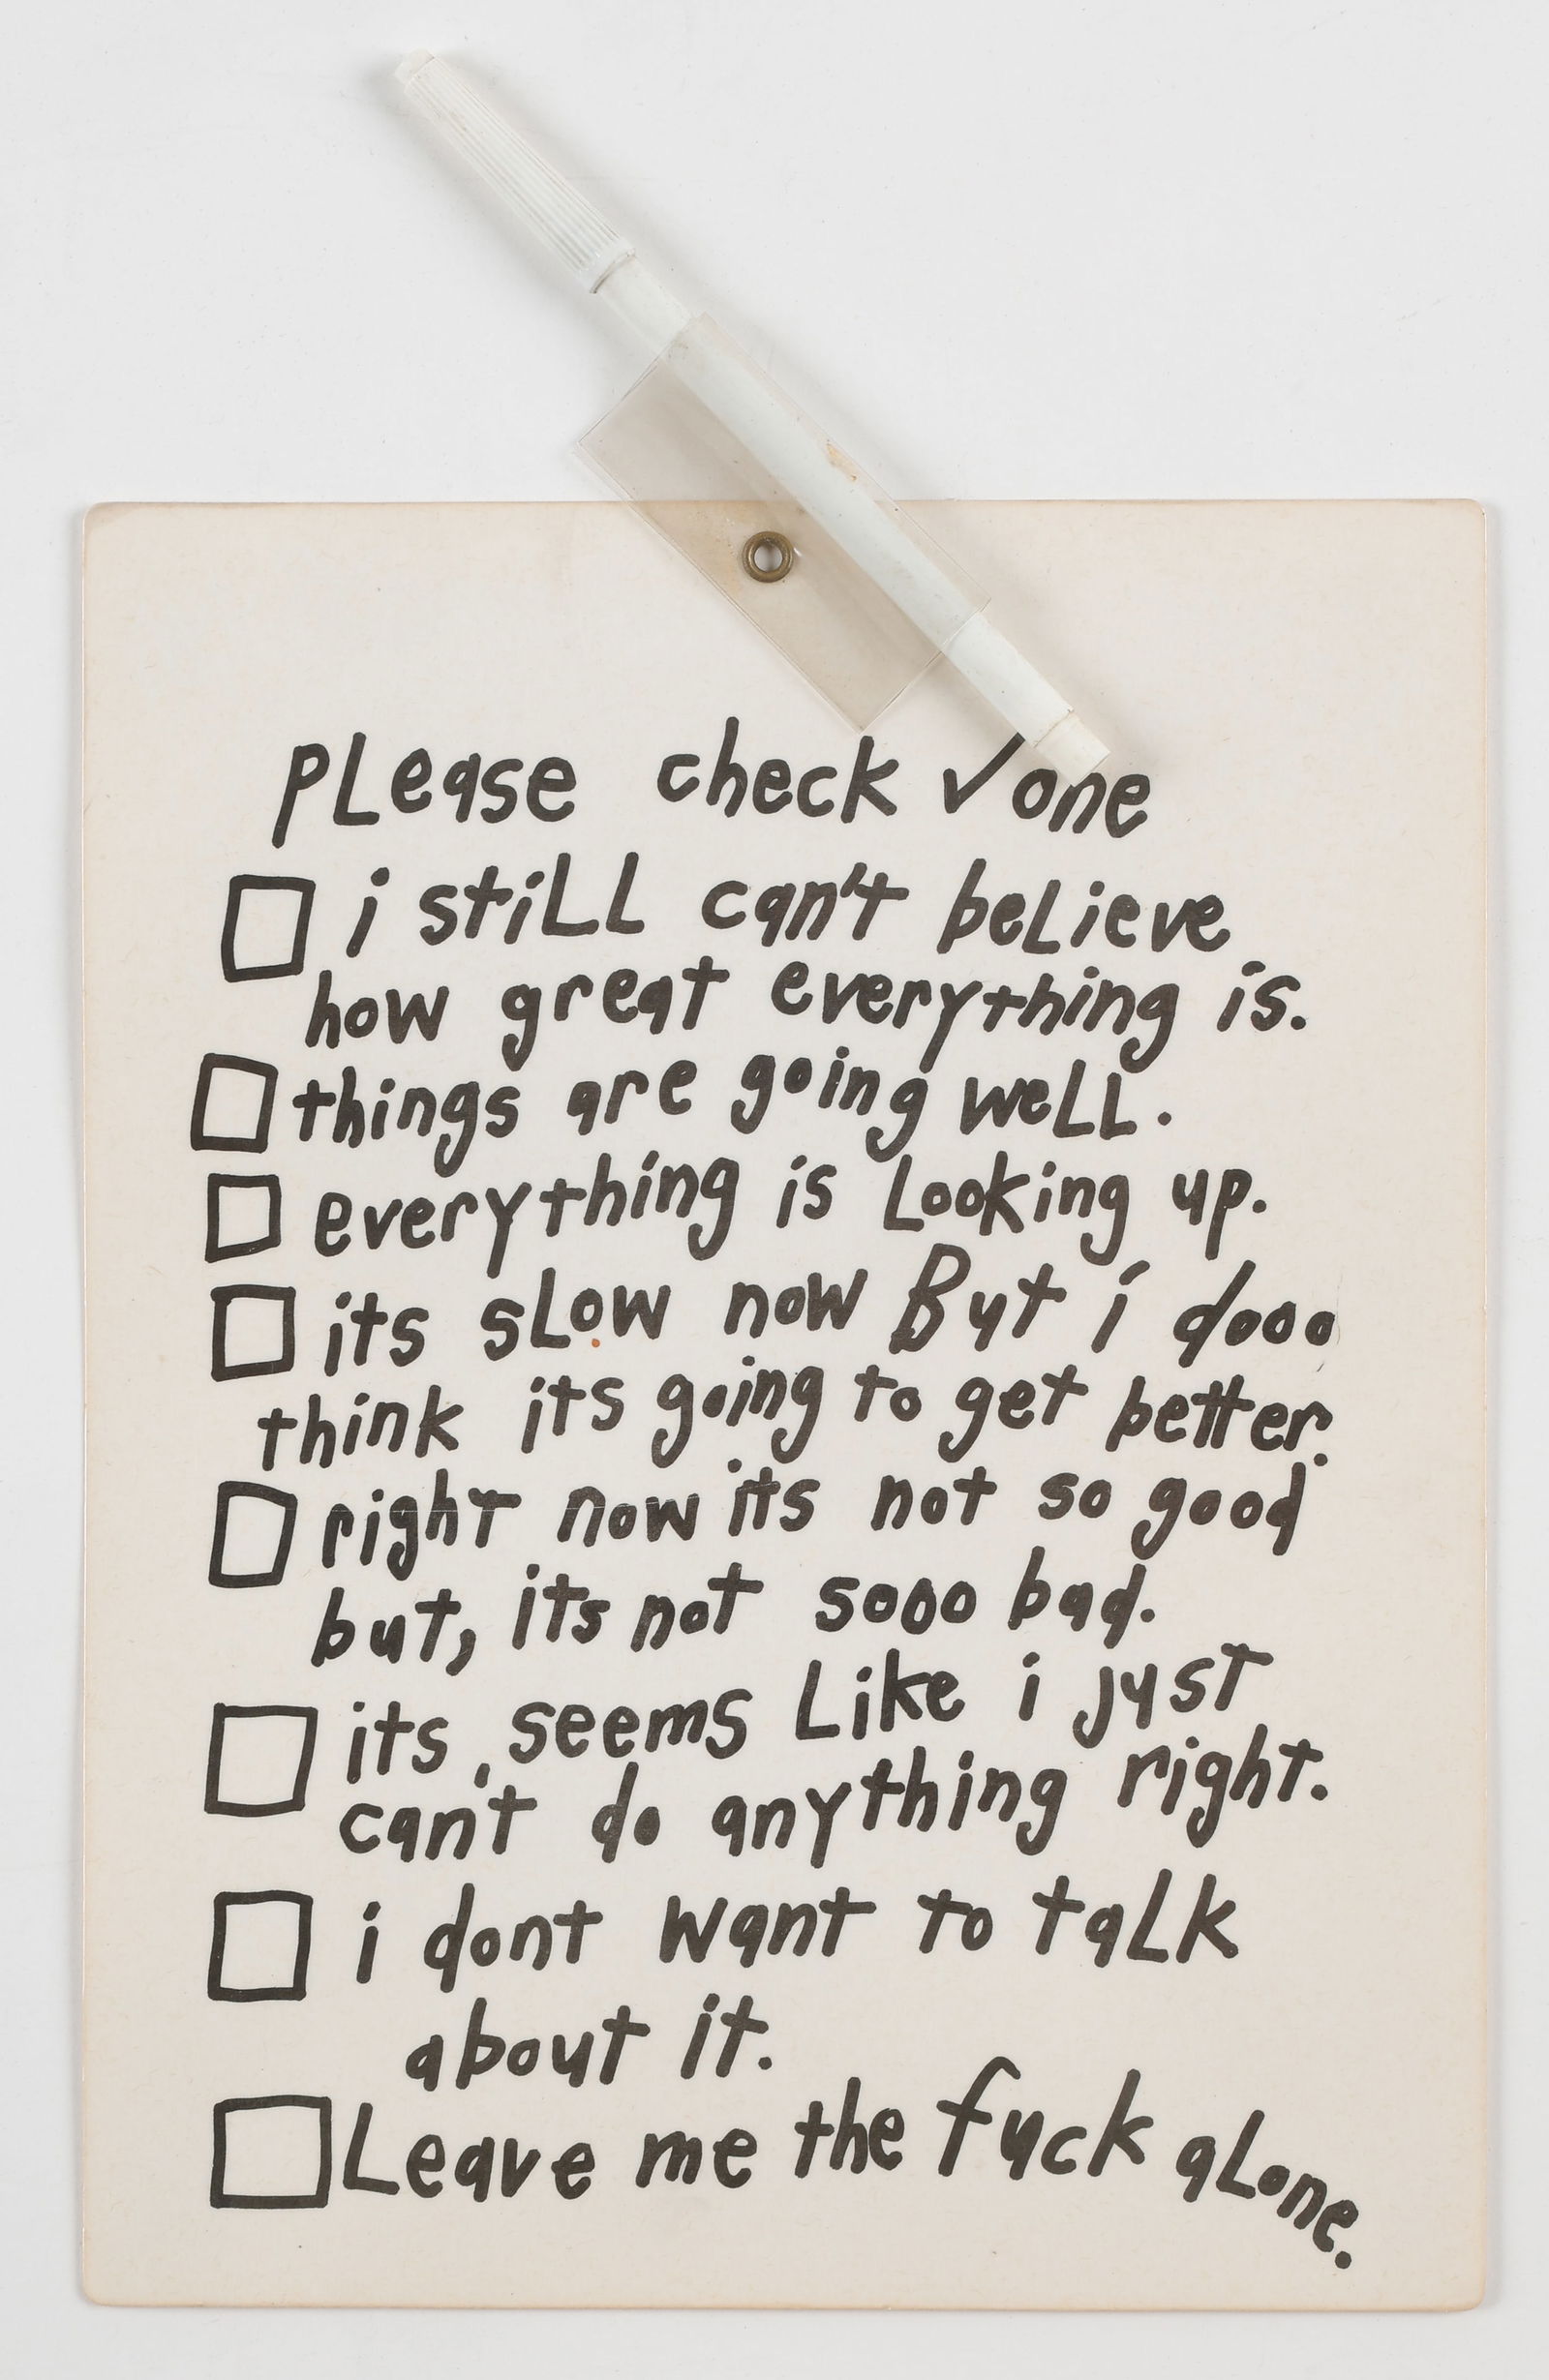 please check ✓ one
☐ i still can't believe
how great everything is.
☐ things are going well.
☐ everything is Looking up.
☐ its slow now But i dooo
think its going to get better.
☐ right now its not so good
but, its not sooo bad.
☐ its seems Like i just
can't do anything right.
☐ i dont want to talk
about it.
☐ Leave me the fuck alone.